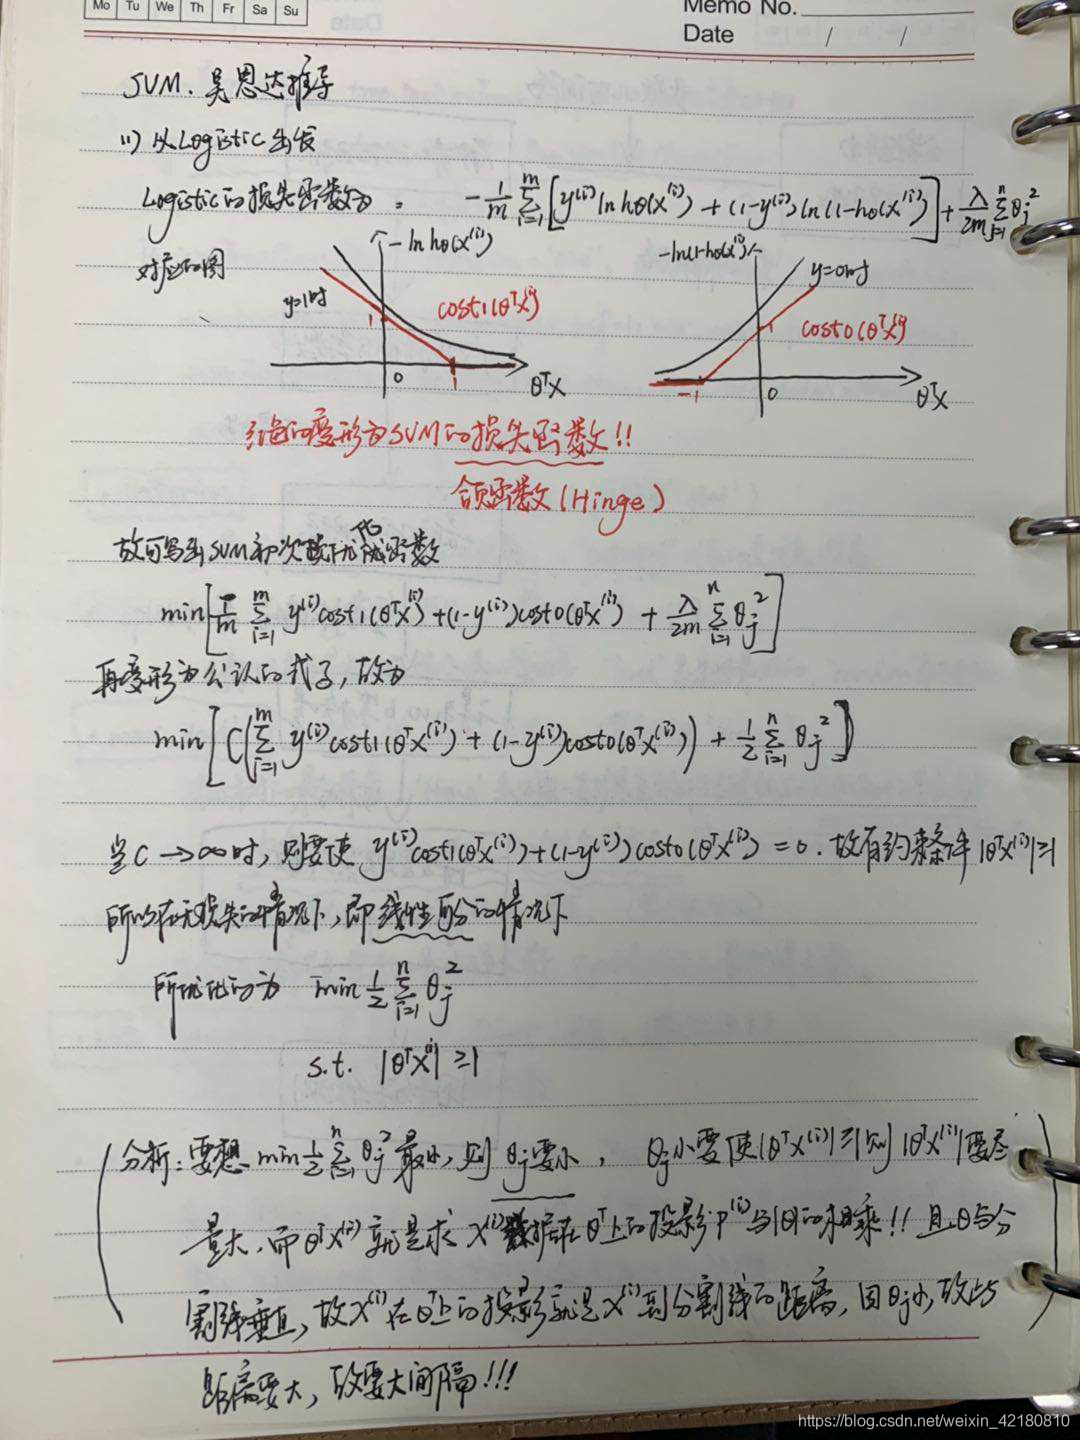 Mo Tu We Th Fr Sa Su
Memo No.
Date / /
SVM. 吴恩达推导
(1) 从Logistic出发
Logistic的损失函数为. -1/m Σ_{i=1}^{m} [y⁽ⁱ⁾ ln hθ(x⁽ⁱ⁾) + (1-y⁽ⁱ⁾) ln(1-hθ(x⁽ⁱ⁾))] + λ/2m Σ_{j=1}^{n} θ_j²
对应的图
-ln hθ(x⁽ⁱ⁾)
y=1时
1
cost1(θᵀx⁽ⁱ⁾)
0
1
θᵀx
-ln(1-hθ(x⁽ⁱ⁾))
y=0时
1
cost0(θᵀx⁽ⁱ⁾)
-1
0
θᵀx
红色的变形为SVM的损失函数!!
合页函数(Hinge)
故可写出SVM初次优化函数
min[1/m Σ_{i=1}^{m} y⁽ⁱ⁾cost1(θᵀx⁽ⁱ⁾) + (1-y⁽ⁱ⁾)cost0(θᵀx⁽ⁱ⁾) + λ/2m Σ_{i=1}^{n} θ_j²]
再变形为公认的式子, 故为
min[C(Σ_{i=1}^{m} y⁽ⁱ⁾cost1(θᵀx⁽ⁱ⁾) + (1-y⁽ⁱ⁾)cost0(θᵀx⁽ⁱ⁾)) + 1/2 Σ_{i=1}^{n} θ_j²]
当C→∞时, 则要使 y⁽ⁱ⁾cost1(θᵀx⁽ⁱ⁾)+(1-y⁽ⁱ⁾)cost0(θᵀx⁽ⁱ⁾) = 0. 故有约束条件 |θᵀx⁽ⁱ⁾|≥1
所以在无损失的情况下, 即线性可分的情况下
所优化的为 min 1/2 Σ_{i=1}^{n} θ_j²
s.t. |θᵀx⁽ⁱ⁾| ≥1
(分析: 要想 min 1/2 Σ_{i=1}^{n} θ_j² 最小, 则 θj要小, θj小要使|θᵀx⁽ⁱ⁾|≥1则 |θᵀx⁽ⁱ⁾|要尽
量大, 而θᵀx⁽ⁱ⁾ 就是求 x⁽ⁱ⁾数据在θᵀ上的投影p⁽ⁱ⁾与|θ|的相乘!! 且θ与分
割线垂直, 故x⁽ⁱ⁾在θᵀ上的投影就是x⁽ⁱ⁾到分割线的距离, 因θj小, 故此)
距离要大, 故要大间隔!!!
https://blog.csdn.net/weixin_42180810